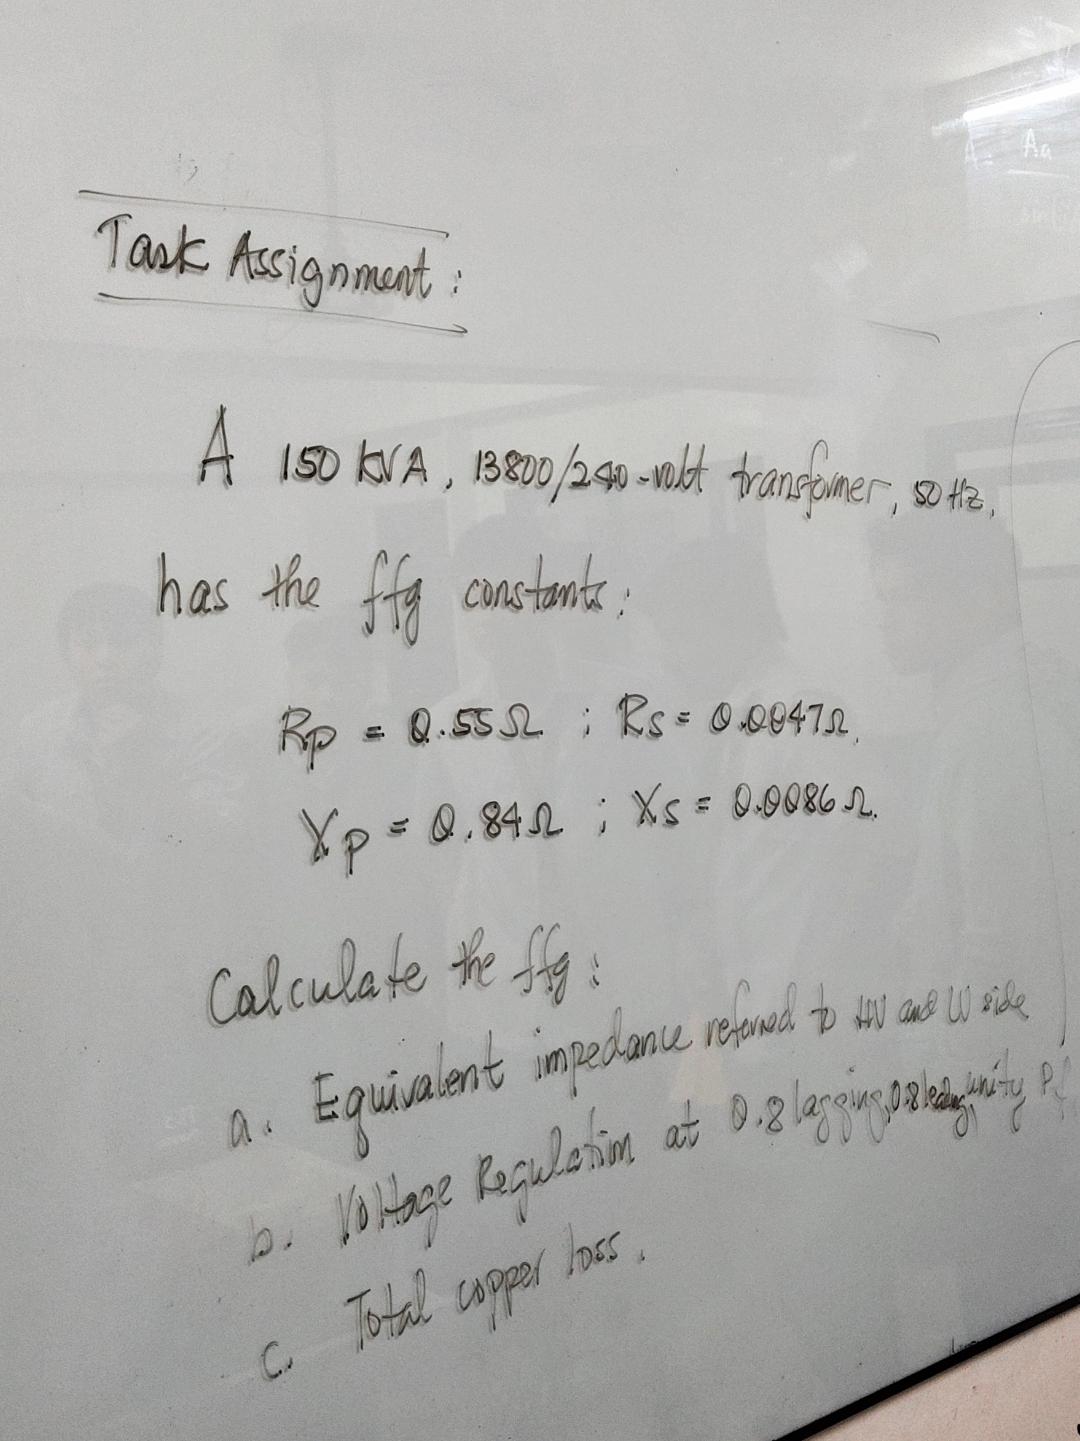 Task Assignment:
A 150 KVA, 13800/240-volt transformer, 50 Hz,
has the ffg constants:
Rp = 0.55Ω ; Rs = 0.0047Ω.
Xp = 0.84Ω ; Xs = 0.0086Ω.
Calculate the ffg:
a. Equivalent impedance referred to HV and LV side
b. Voltage Regulation at 0.8 lagging, 0.8 leading, unity Pf
c. Total copper loss.